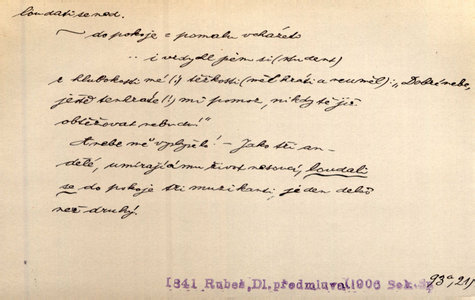 loudati se ned.
— do pokoje e pomalu vcházeti
.. i vzdychl jsem si (student)
z hlubokosti mé (!) těžkosti (měl hráti a neuměl): „Dobré nebe,
ještě tenkráte (!) mi pomoz, nikdy tě již
obtěžovat nebudu!"
A nebe mě vyslyšelo! — Jako tři an-
dělé, umírajícímu život nesoucí, loudali
se do pokoje tři muzikanti, jeden delší
než druhý.
1841 Rubeš, DI. předmluva (1906 Sek.
93a, 21)